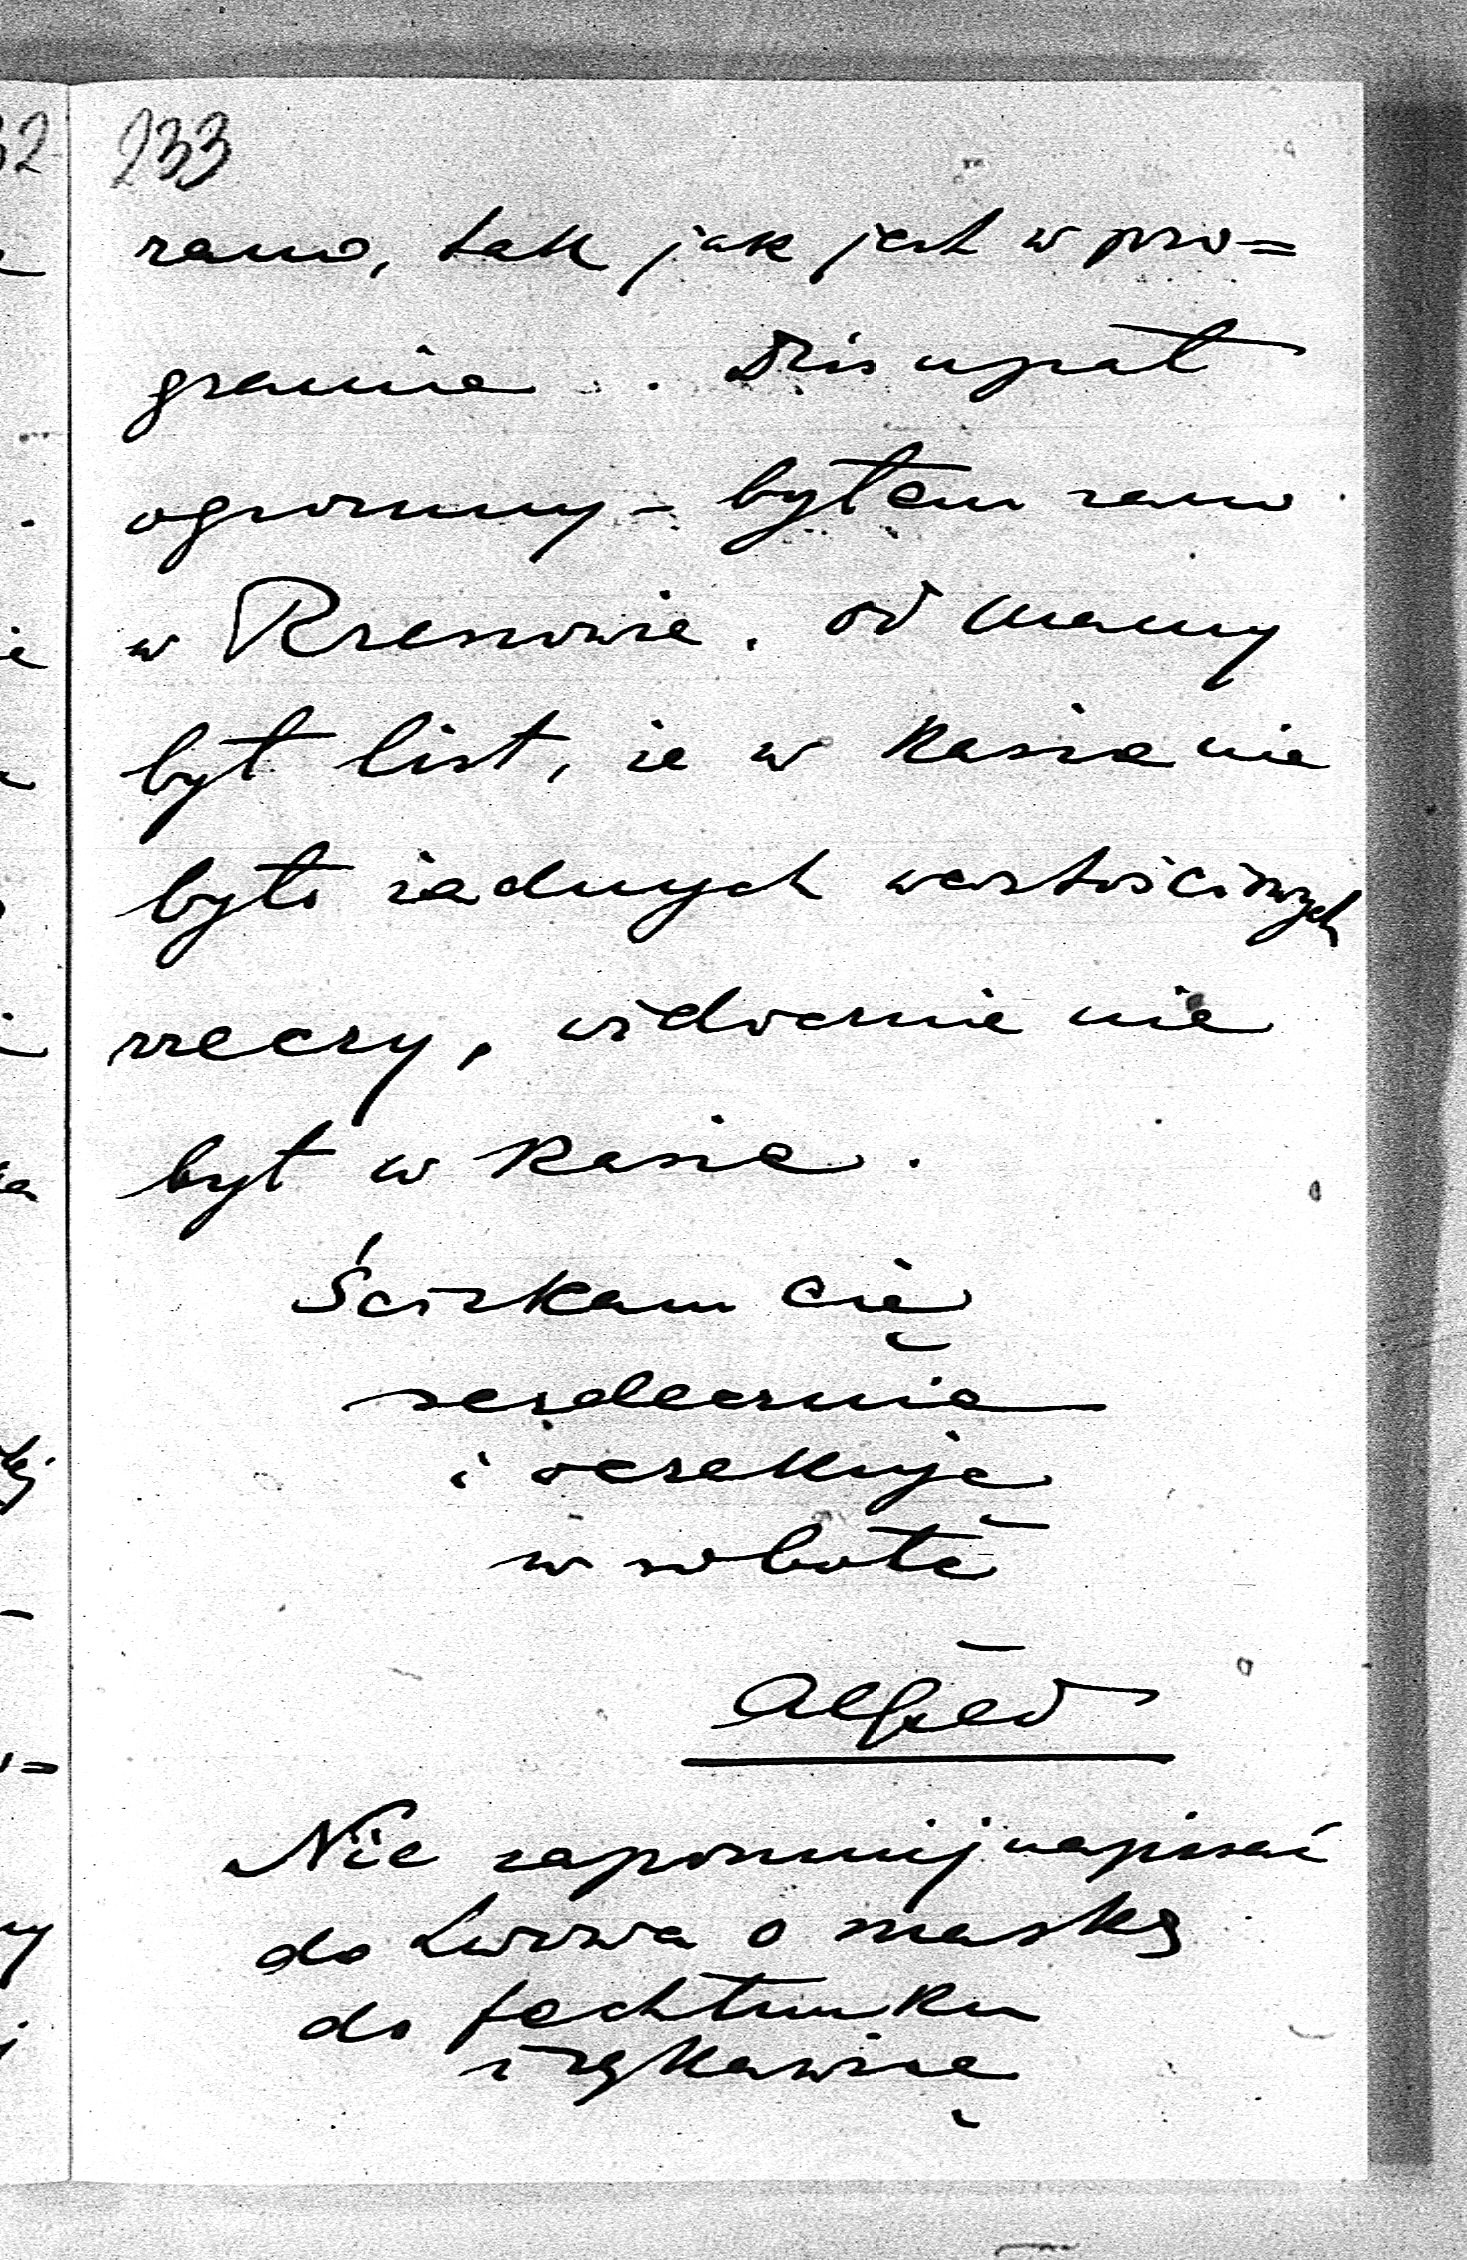 233
rano, tak jak jest w pro=
gramie. Dziś upał
ogromny – byłem rano
w Rzeszowie. Od Mamy
był list, że w kasie nie
było żadnych wartościowych
rzeczy, widocznie nie
był w kasie.
Ściskam Cię
serdecznie
i oczekuję
w sobotę
Alfred
Nie zapomnij napisać
do Lwowa o maskę
do fechtunku
i rękawicę